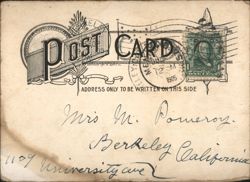 POST CARD
12-M
1905
ADDRESS ONLY TO BE WRITTEN ON THIS SIDE
Mrs M. Pomeroy.
Berkeley California
University ave